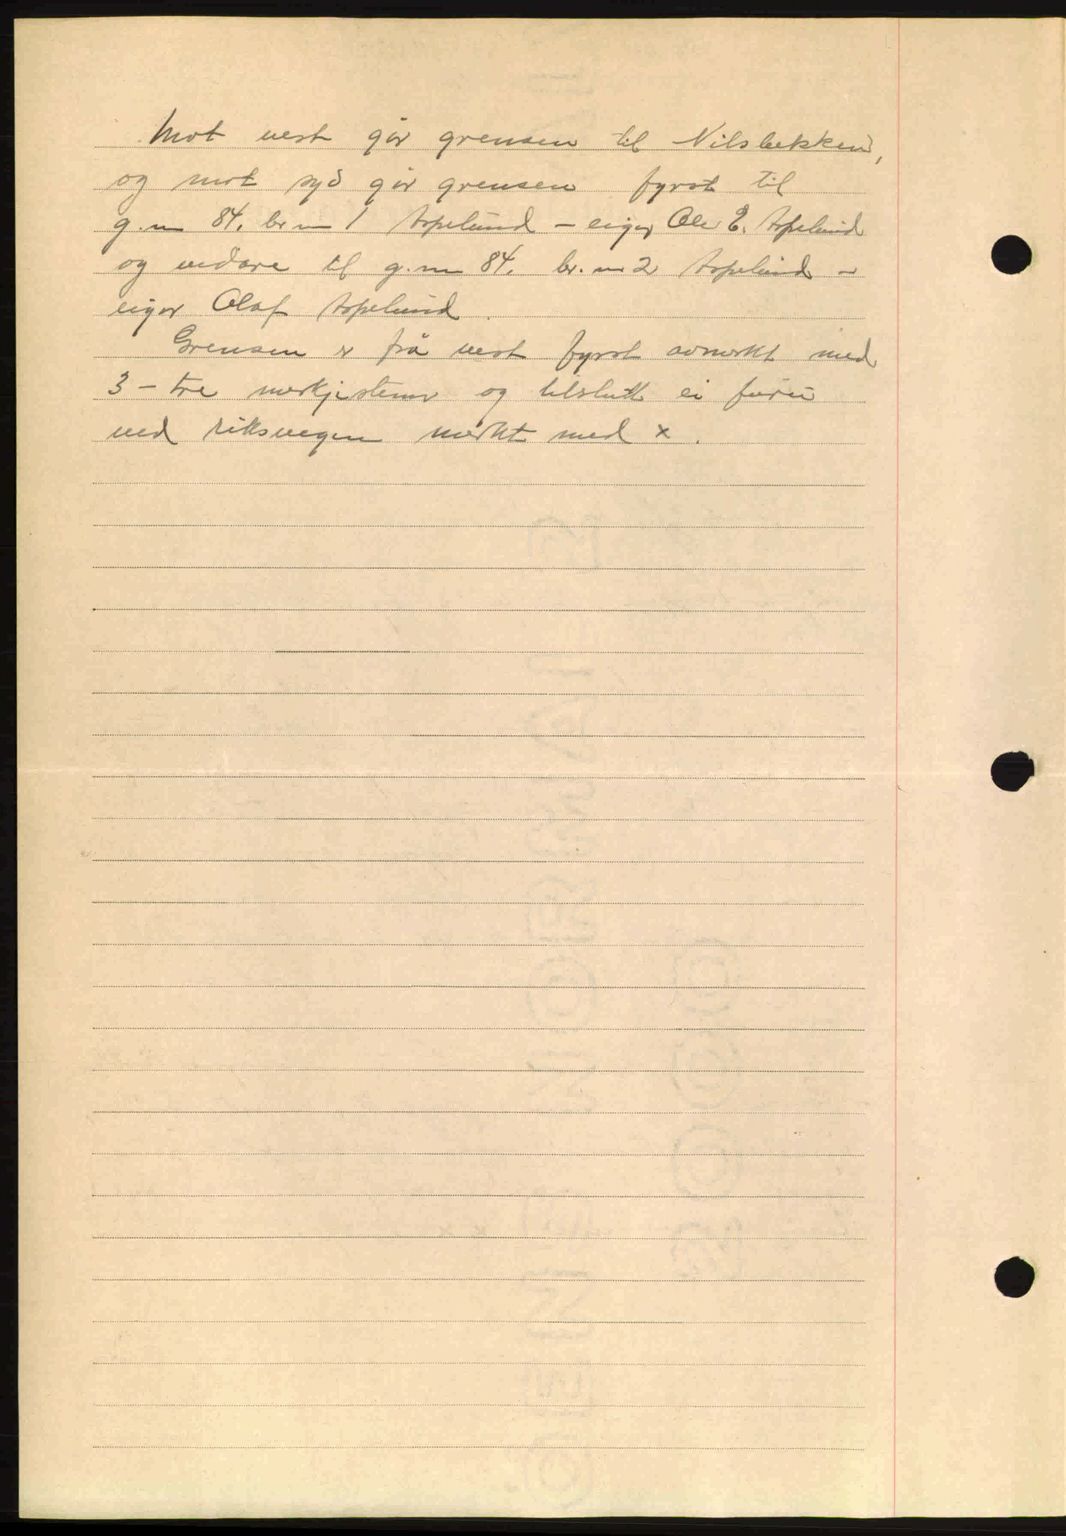 Mot vest går grensen til Nilsbekken,
og mot syd går grensen fyrst til
g.nr 84, br nr 1 Aspelund - eigar Ole E. Aspelund
og vidare til g.nr 84, br. nr 2 Aspelund -
eigar Olaf Aspelund.
Grensen er frå vest fyrst avmerkt med
3 - tre merkjesteinar og tilslutt ei furu
ved riksvegen merkt med x.